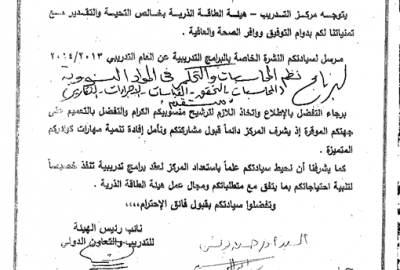 يتوجه مركز التدريب - هيئة الطاقة الذرية بخالص التحية والتقدير مع
تمنياتنا لكم بدوام التوفيق ووافر الصحة والعافية .
مرسل لسيادتكم النشرة الخاصة بالبرامج التدريبية عن العام التدريبي ٢٠١٣/٢٠١٤
لبرنامج نظم المحاسبات والتحكم فى المواد النووية
برجاء التفضل بالإطلاع واتخاذ اللازم لترشيح منسوبيكم الكرام والتفضل بالتعميم على
جهتكم الموقرة إذ يشرف المركز دائماً قبول مشاركتكم ونأمل إفادة تنمية مهارات كوادركم
المتميزة .
كما يشرفنا أن نحيط سيادتكم علماً باستعداد المركز لعقد برامج تدريبية تنفذ خصيصاً
لتلبية احتياجاتكم بما يتفق مع متطلباتكم ومجال عمل هيئة الطاقة الذرية .
وتفضلوا سيادتكم بقبول فائق الإحترام ،،،،
نائب رئيس الهيئة
للتدريب والتعاون الدولي